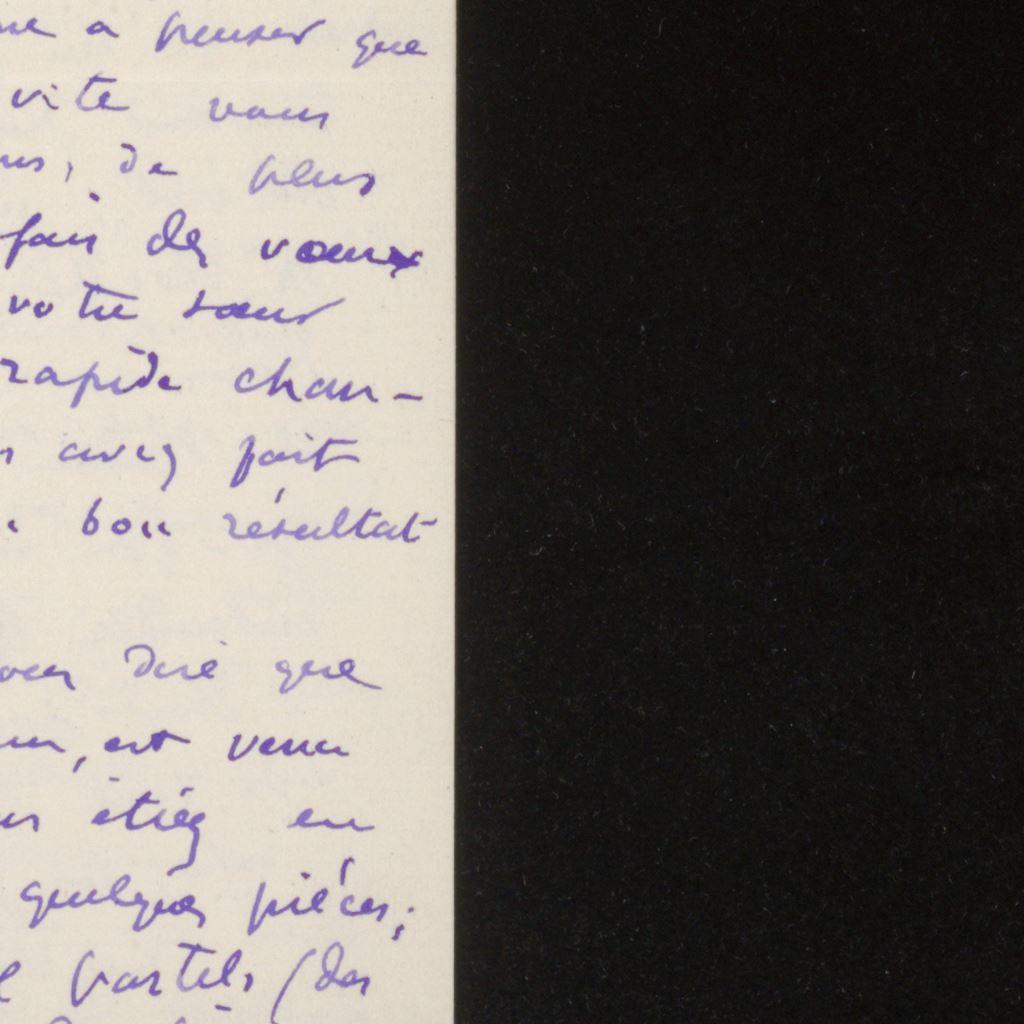 a penser que
vite vous
de plus
fais des vœux
votre sœur
rapide chan-
avez fait
bon résultat
dire que
, est venu
étiez en
quelques pièces;
pastels (des